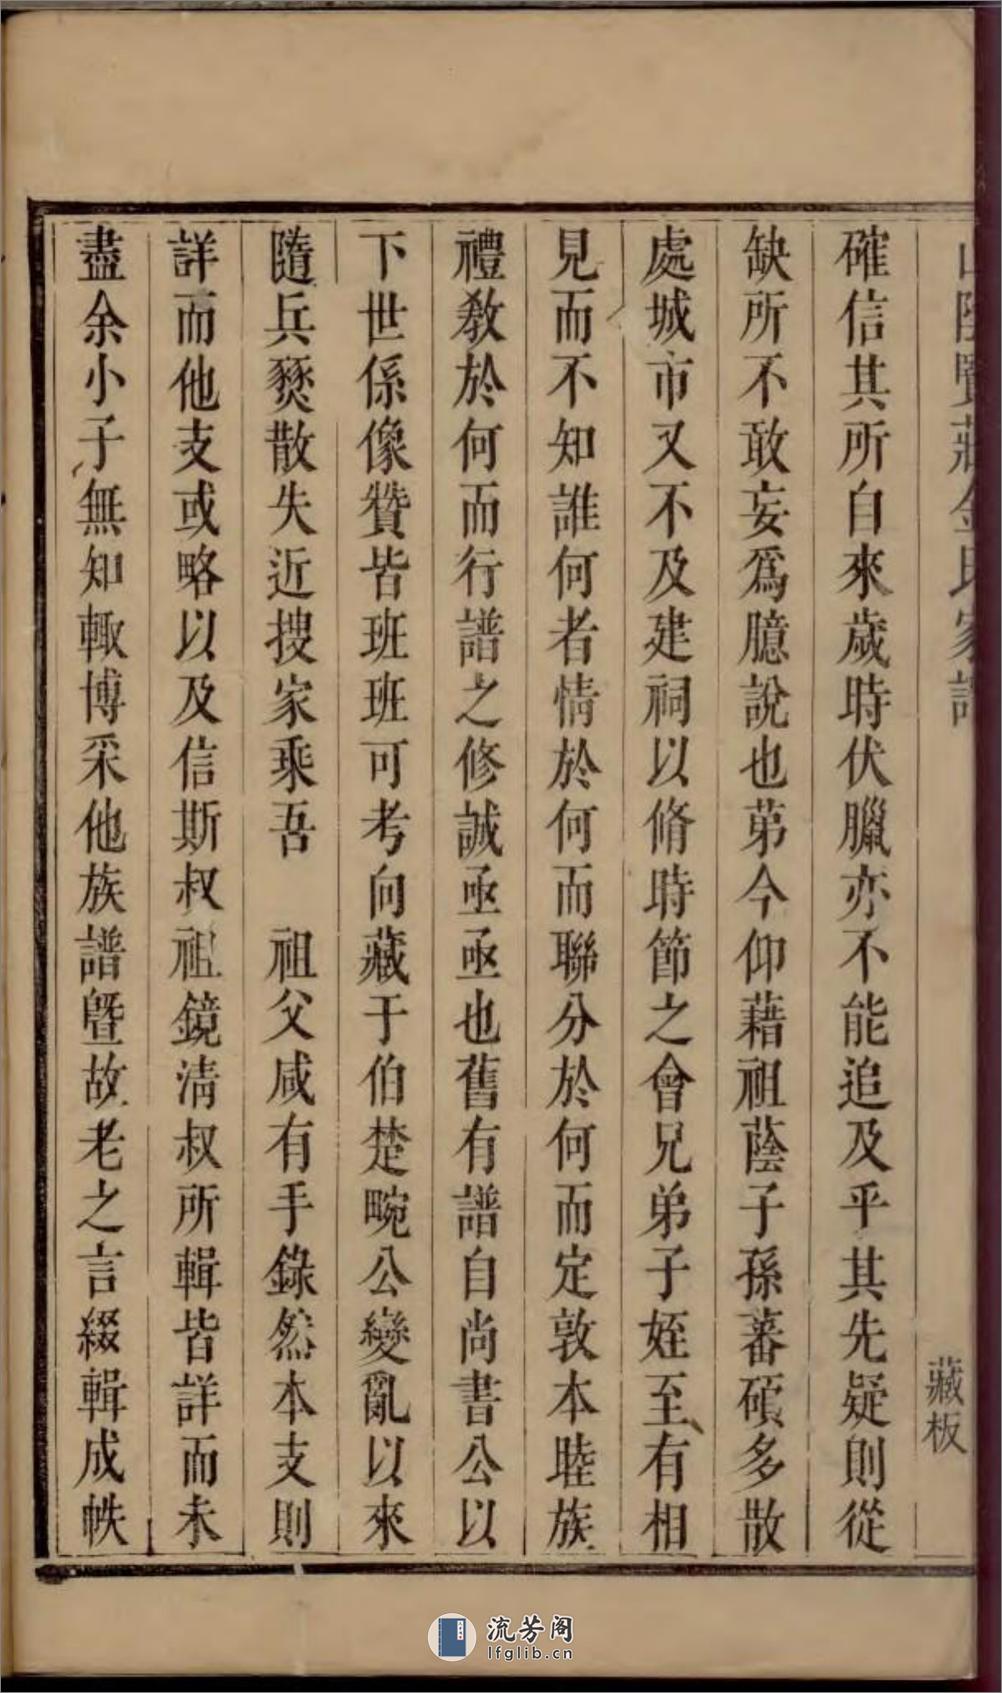 山陰賢莊金氏家譜
藏板
確信其所自來歲時伏臘亦不能追及乎其先疑則從
缺所不敢妄爲臆說也苐今仰藉祖蔭子孫蕃碩多散
處城市又不及建祠以脩時節之會兄弟子姪至有相
見而不知誰何者情於何而聯分於何而定敦本睦族
禮敎於何而行譜之修誠亟亟也舊有譜自尚書公以
下世係像贊皆班班可考向藏于伯楚畹公變亂以來
隨兵燹散失近搜家乘吾 祖父咸有手錄然本支則
詳而他支或略以及信斯叔祖鏡淸叔所輯皆詳而未
盡余小子無知輙博采他族譜曁故老之言綴輯成帙
流芳阁
lfglib.cn